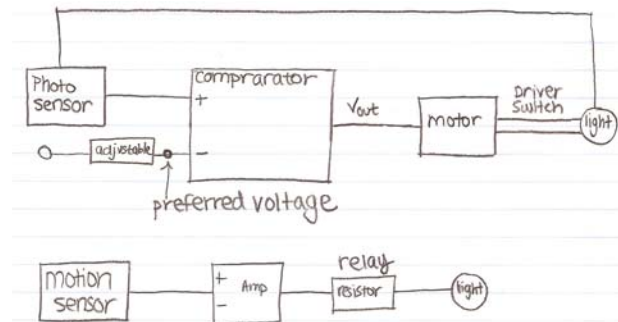 Photo
sensor
comprarator
+
-
adjustable
preferred voltage
Vout
motor
Driver
Switch
light
motion
sensor
+
-
Amp
relay
resistor
light